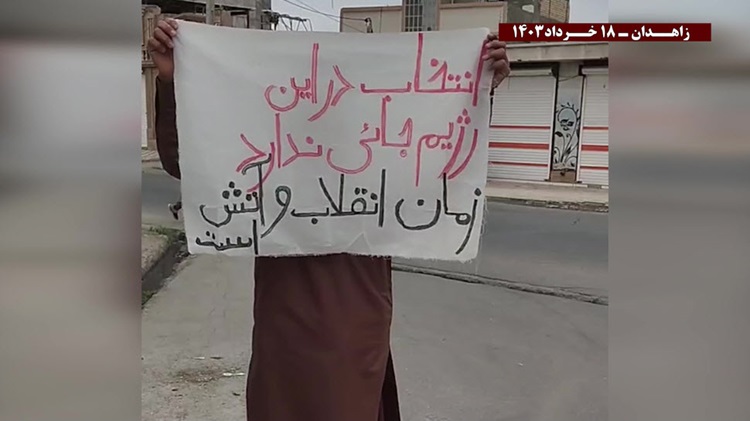 زاهـدان ـ ۱۸ خـرداد۱۴۰۳
انتخاب در این
رژیم جائی ندارد
زمان انقلاب و آتش
است